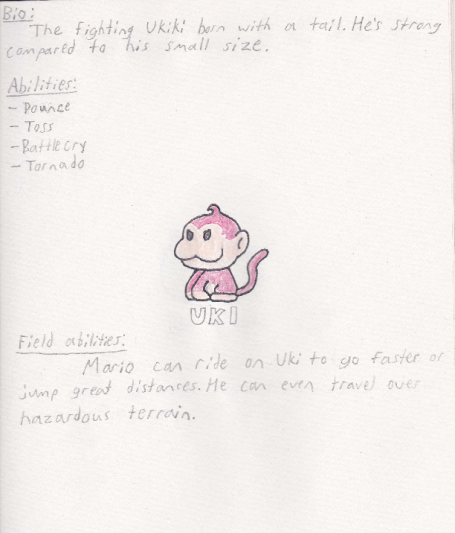 Bio:
The fighting Ukiki born with a tail. He's strong
compared to his small size.
Abilities:
- Pounce
- Toss
- Battle cry
- Tornado
UKI
Field abilities:
Mario can ride on Uki to go faster or
jump great distances. He can even travel over
hazardous terrain.